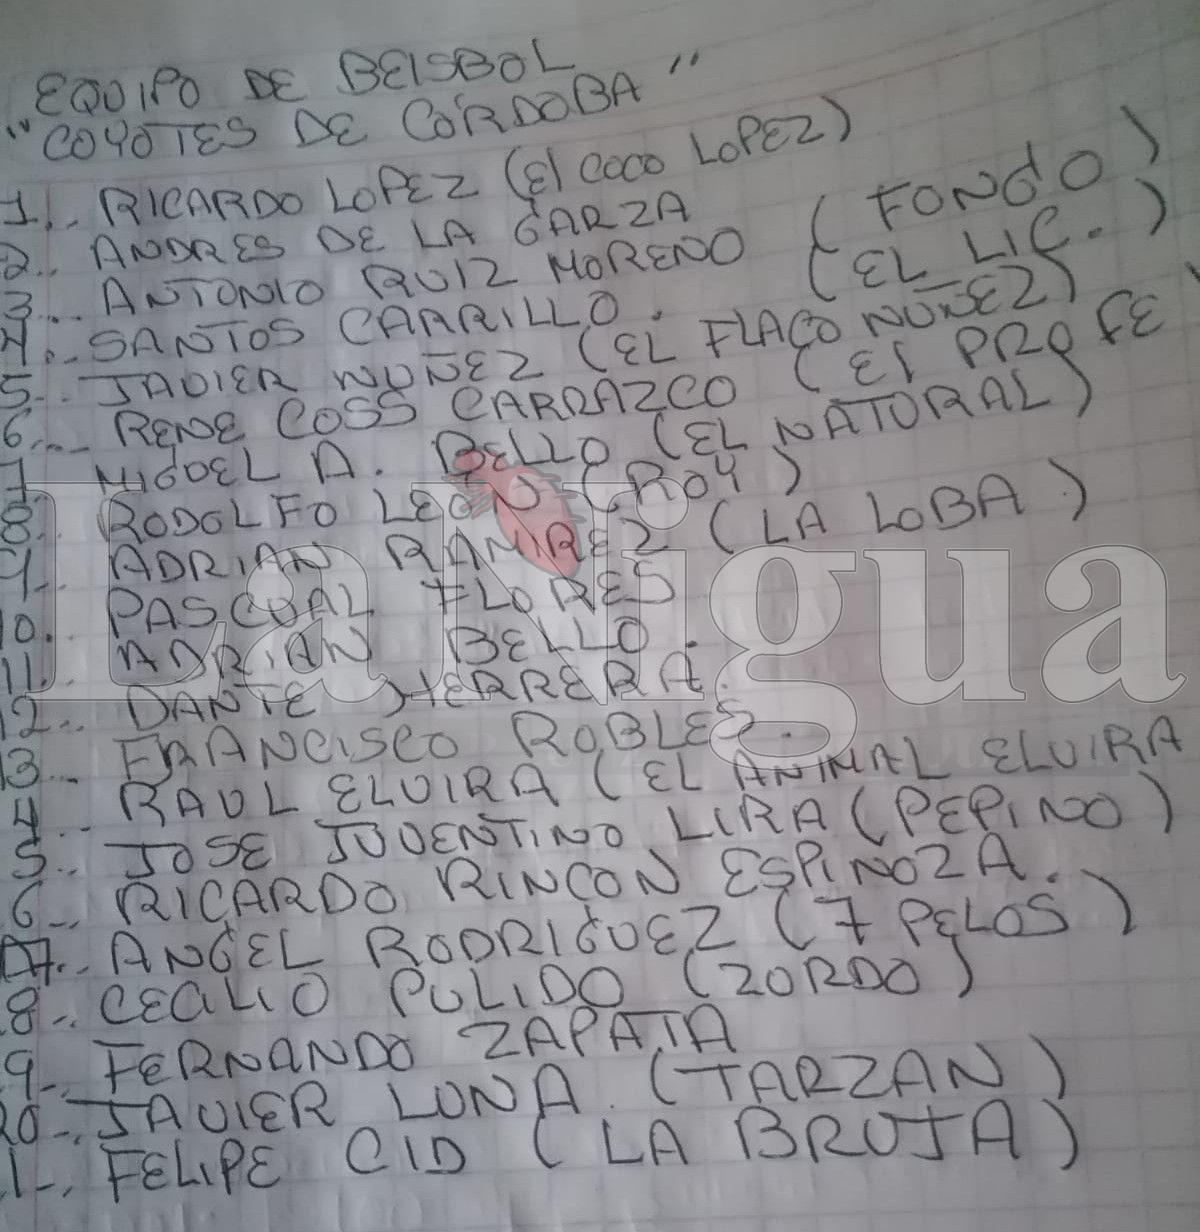 EQUIPO DE BEISBOL
"COYOTES DE CÓRDOBA"
1.. RICARDO LOPEZ (El COCO LOPEZ)
2.. ANDRES DE LA GARZA
3... ANTONIO RUIZ MORENO (FONGO)
4... SANTOS CARRILLO. (EL LIC.)
5.. JAVIER NUÑEZ (EL FLACO NUÑEZ)
6... RENE COSS CARRAZCO (El PROFE
7. MIGUEL A. BELLO (EL NATURAL)
8. RODOLFO LEON (ROY)
9.. ADRIAN RAMIREZ (LA LOBA)
10. PASCUAL FLORES
11. ADRIAN BELLO.
12.. DANTE HERRERA.
13... FRANCISCO ROBLES.
4.. RAUL ELVIRA (EL ANIMAL ELVIRA
5.. JOSE JUVENTINO LIRA (PEPINO)
6.. RICARDO RINCON ESPINOZA.
17.. ANGEL RODRIGUEZ (7 PELOS)
8.. CECILIO PULIDO (ZORDO)
9.. FERNANDO ZAPATA
20.. JAVIER LUNA. (TARZAN)
1.. FELIPE CID (LA BRUJA)
LaNigua